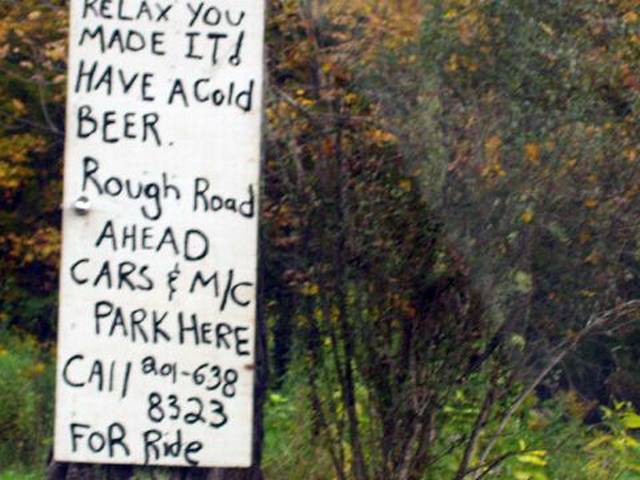 RELAX YOU
MADE IT!
HAVE A Cold
BEER.
Rough Road
AHEAD
CARS & M/C
PARK HERE
CAll 201-638
8323
FOR Ride